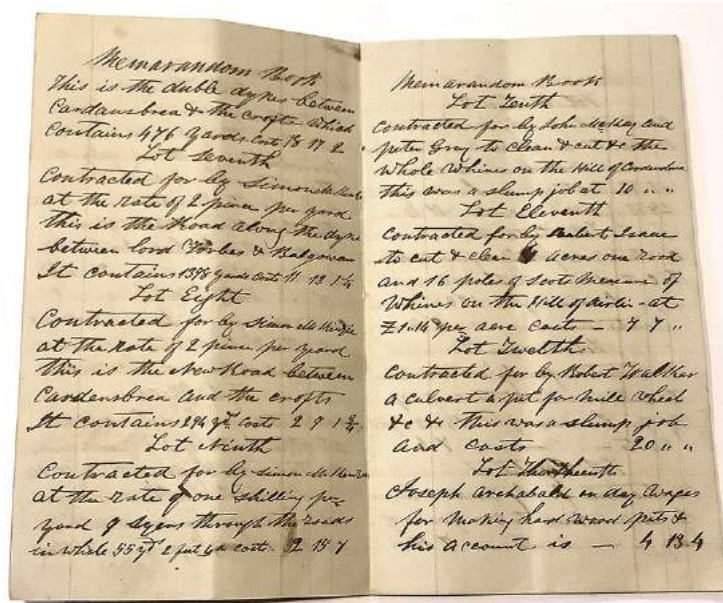 Memarandom Book
This is the duble dykes between
Cardansbrea & the crofts which
Contains 476 yards Cost 18 17 2
Lot Seventh
Contracted for by Simon
at the rate of 2 pince per yard
this is the Road along the dyke
between lord Forbes & Balgowan
It contains 1398 yards Costs 11 13 1¼
Lot Eight
Contracted for by Simon McKinzie
at the Rate of 2 pince per yeard
this is the New Road between
Cardensbrea and the crofts
It contains 294 yds Costs 2 9 1
Lot Ninth
Contracted for by Simon McKenzie
at the Rate of one shilling per
yard 9 through the roads
in whole 55 yd 2 fut Costs 2 15 7
Memarandom Book
Lot Tenth
Contracted for by John McKay and
peter Gray to clean & cut &c the
Whole Whines on the Hill of
this was a slump job at 10 " "
Lot Eleventh
Contracted for by Isaac
to cut & clean 4 acres one rood
and 16 poles of Scots Measure of
Whines on the Hill of airlie - at
£1.14 per acre Costs — 7 7 "
Lot Twelth
Contracted for by Robert Walker
a Calvert & pit for Mill Wheel
&c &c this was a slump job
and costs 20 " "
Lot
Joseph Archabald on day Wages
for Making hard Wood &
his account is — 4 13 4